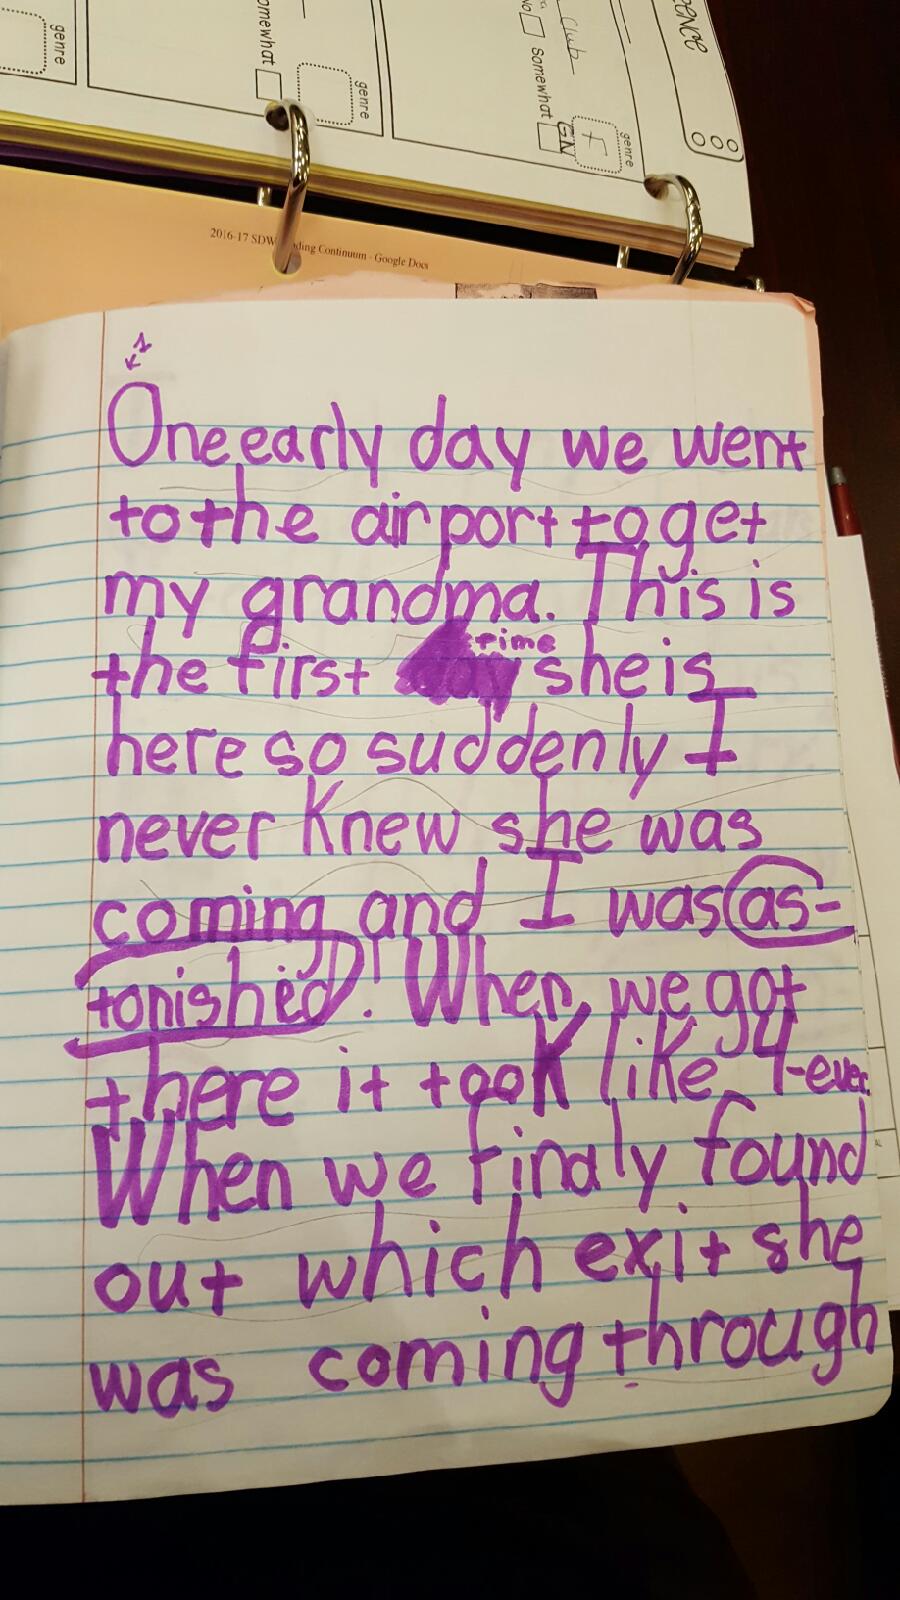 ENCE
Club
No
Somewhat
GN
F
genre
omewhat
genre
genre
2016-17 SDW
ding Continuum - Google Docs
One early day we went
to the airport to get
my grandma. This is
the first time she is
here so suddenly I
never knew she was
coming and I was as-
tonished! When we got
there it took like 4-ever.
When we finaly found
out which exit she
was coming through